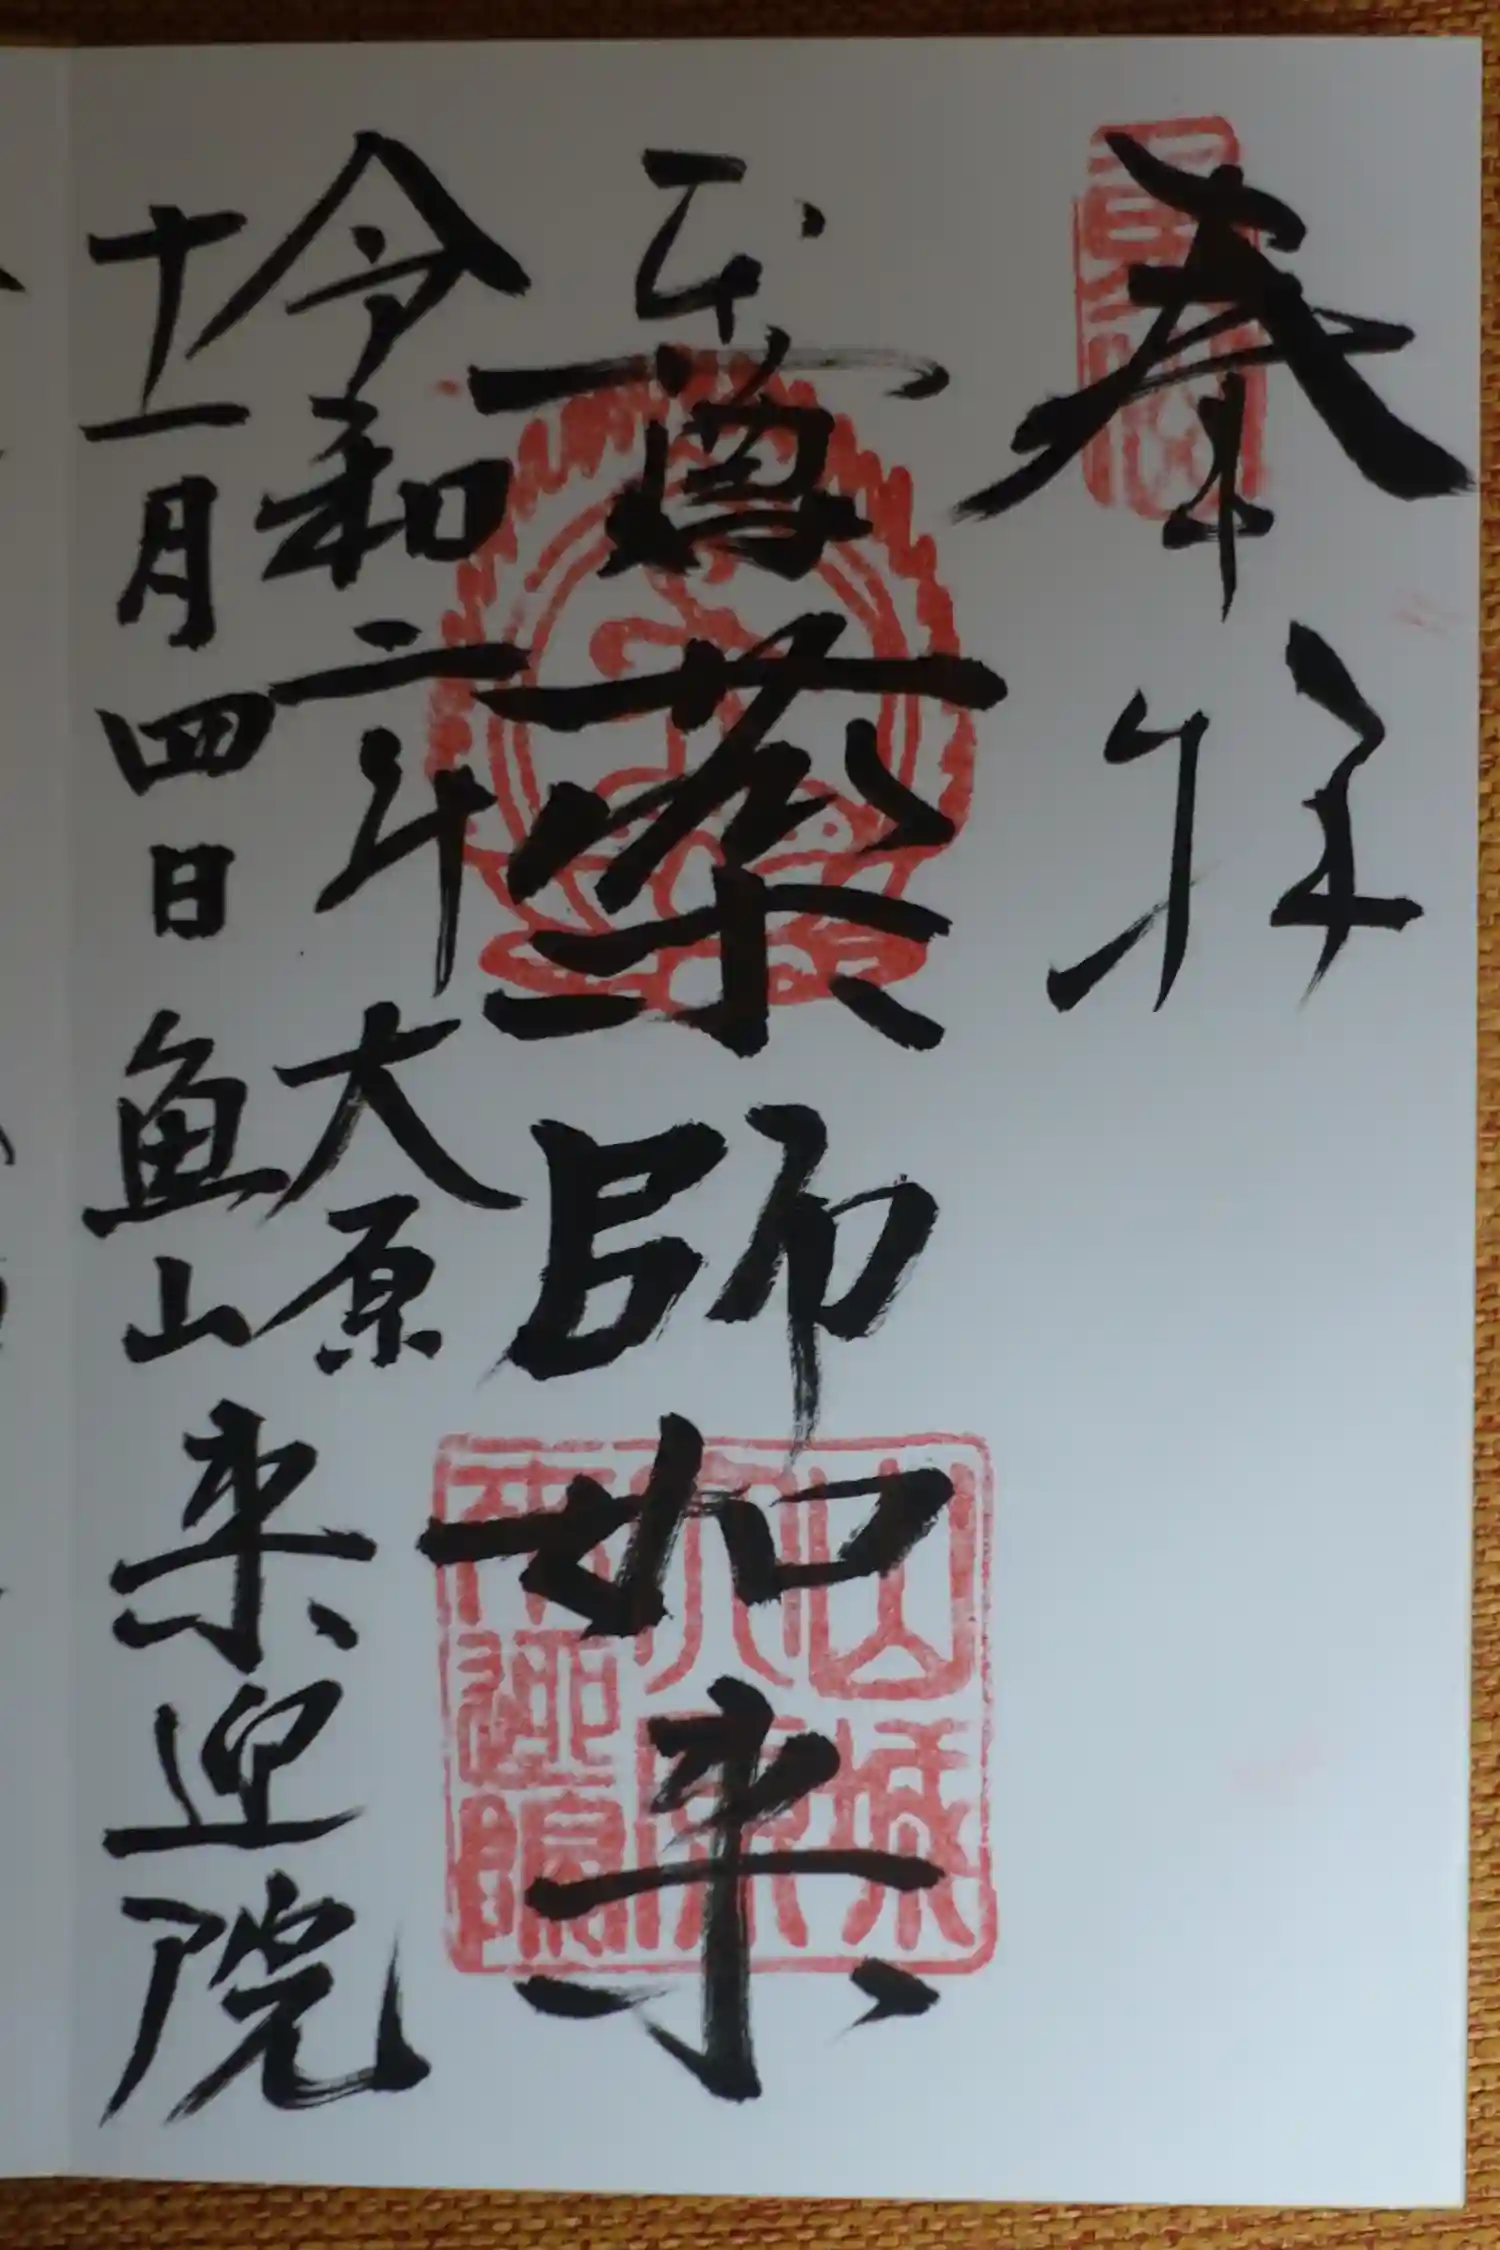 奉拝
本尊薬師如来
令和二年 大原
十一月四日 魚山 来迎院
山城
大原
来迎院